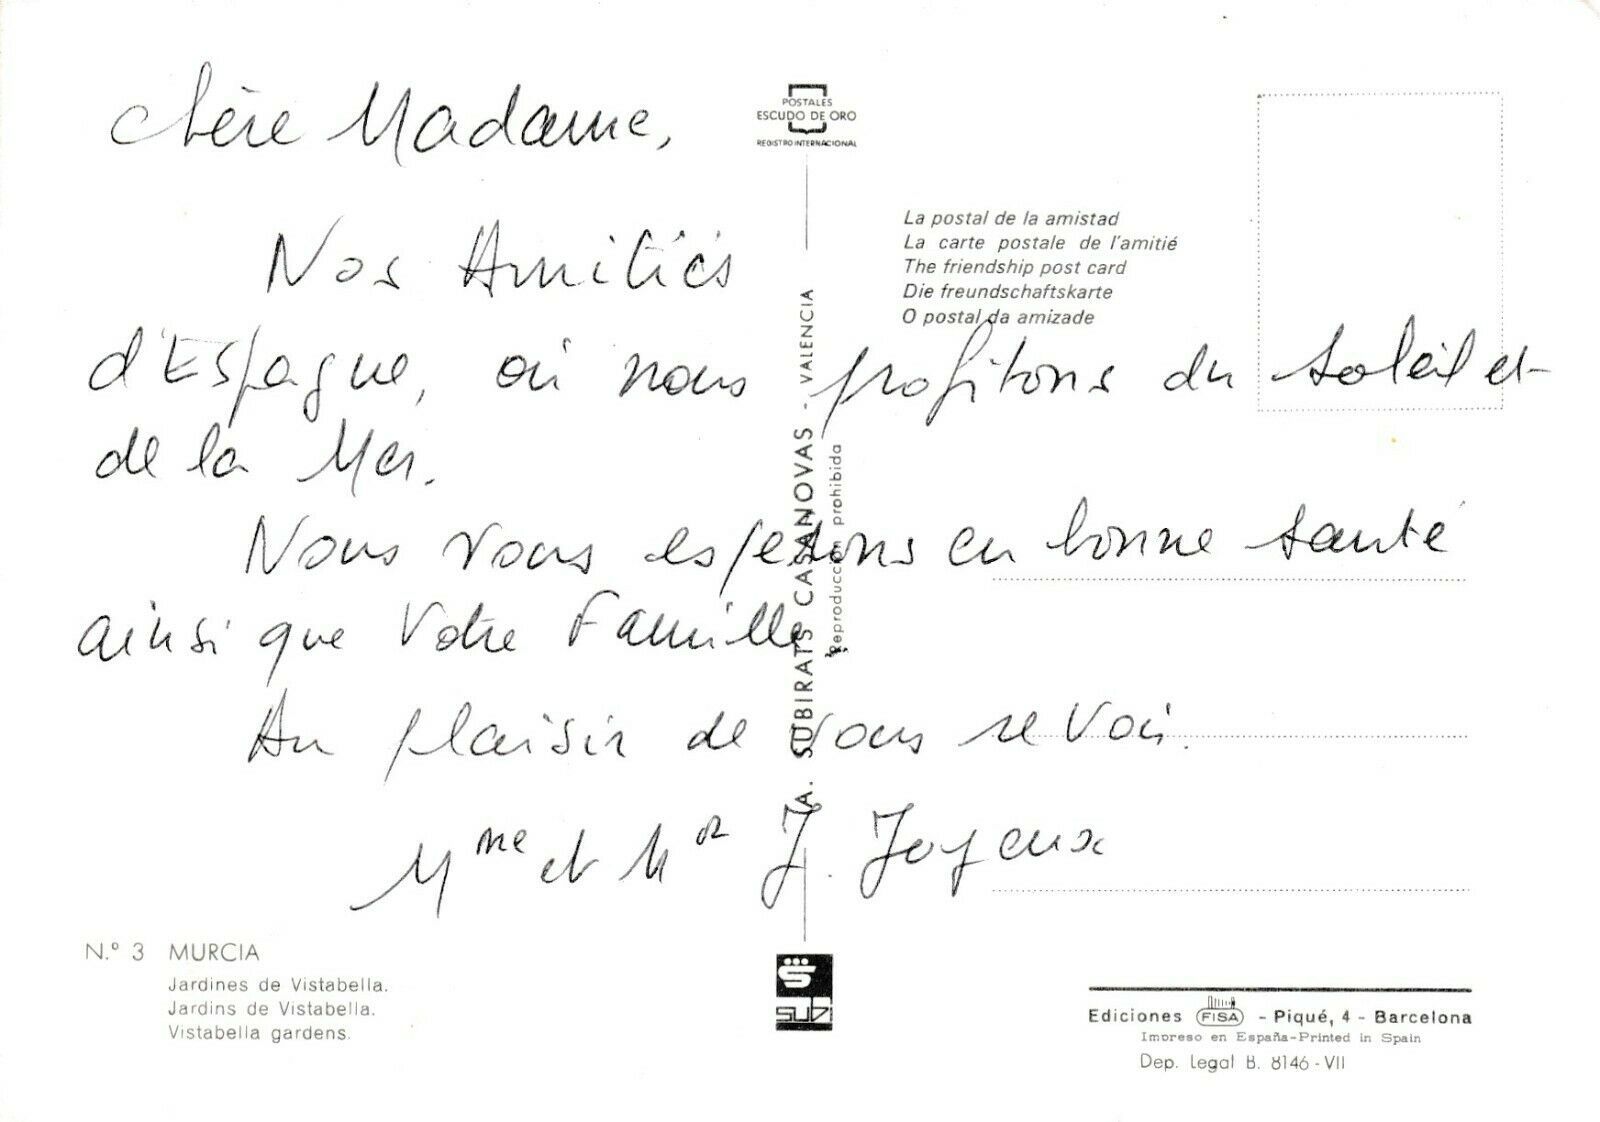 Chère Madame,
Nos Amitiés
d'Espagne, où nous profitons du soleil et
de la Mer.
Nous vous espérons en bonne santé
ainsi que Votre Famille.
Au plaisir de vous revoir.
Mme et Mr J. Joyeux
POSTALES
ESCUDO DE ORO
REGISTRO INTERNACIONAL
La postal de la amistad
La carte postale de l'amitié
The friendship post card
Die freundschaftskarte
O postal da amizade
A. SUBIRATS CASANOVAS - VALENCIA
Reproducción prohibida
N.º 3 MURCIA
Jardines de Vistabella.
Jardins de Vistabella.
Vistabella gardens.
subi
Ediciones FISA - Piqué, 4 - Barcelona
Impreso en España-Printed in Spain
Dep. Legal B. 8146 - VII